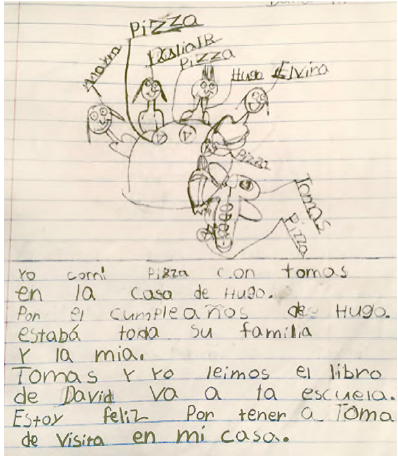 Pizza
Pizza
Hugo Elvira
Pizza
Tomas
Pizza
Yo comi Pizza con tomas
en la casa de Hugo.
Por el cumpleaños de Hugo.
estabá toda su familia
Y la mia.
Tomas Y Yo leimos el libro
de David va a la escuela.
Estoy feliz Por tener a Toma
de visita en mi casa.